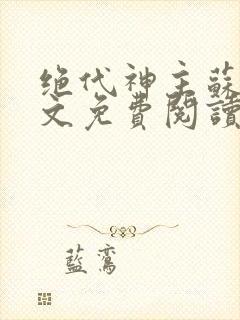 绝代神主蘇
文免費閱讀
藍鸞